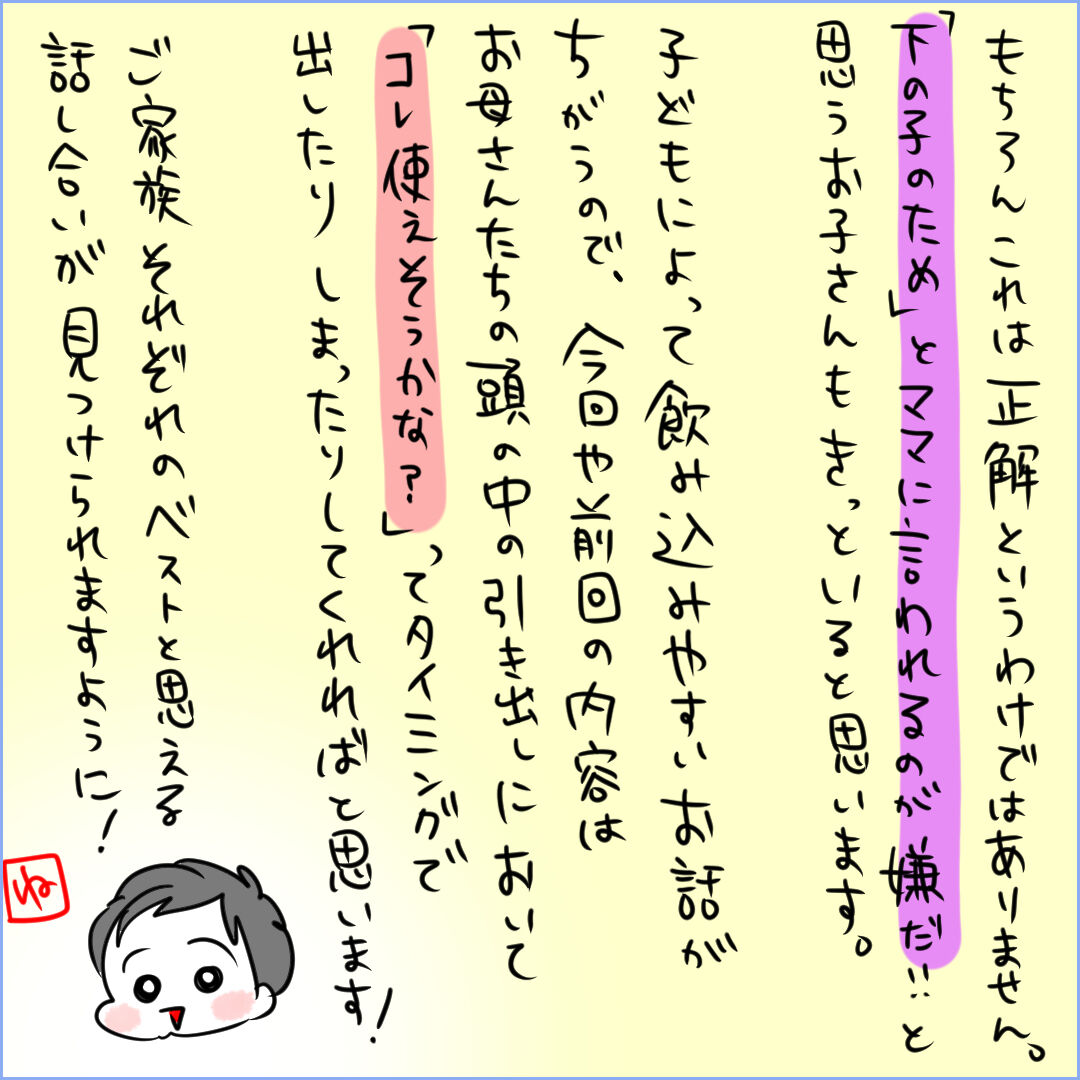 もちろんこれは正解というわけではありません。
「下の子のため」とママに言われるのが嫌だ…と
思うお子さんもきっといると思います。
子どもによって飲み込みやすいお話が
ちがうので、今回や前回の内容は
お母さんたちの頭の中の引き出しにおいて
「コレ使えそうかな？」ってタイミングで
出したりしまったりしてくれればと思います！
ご家族それぞれのベストと思える
話し合いが見つけられますように！
ね